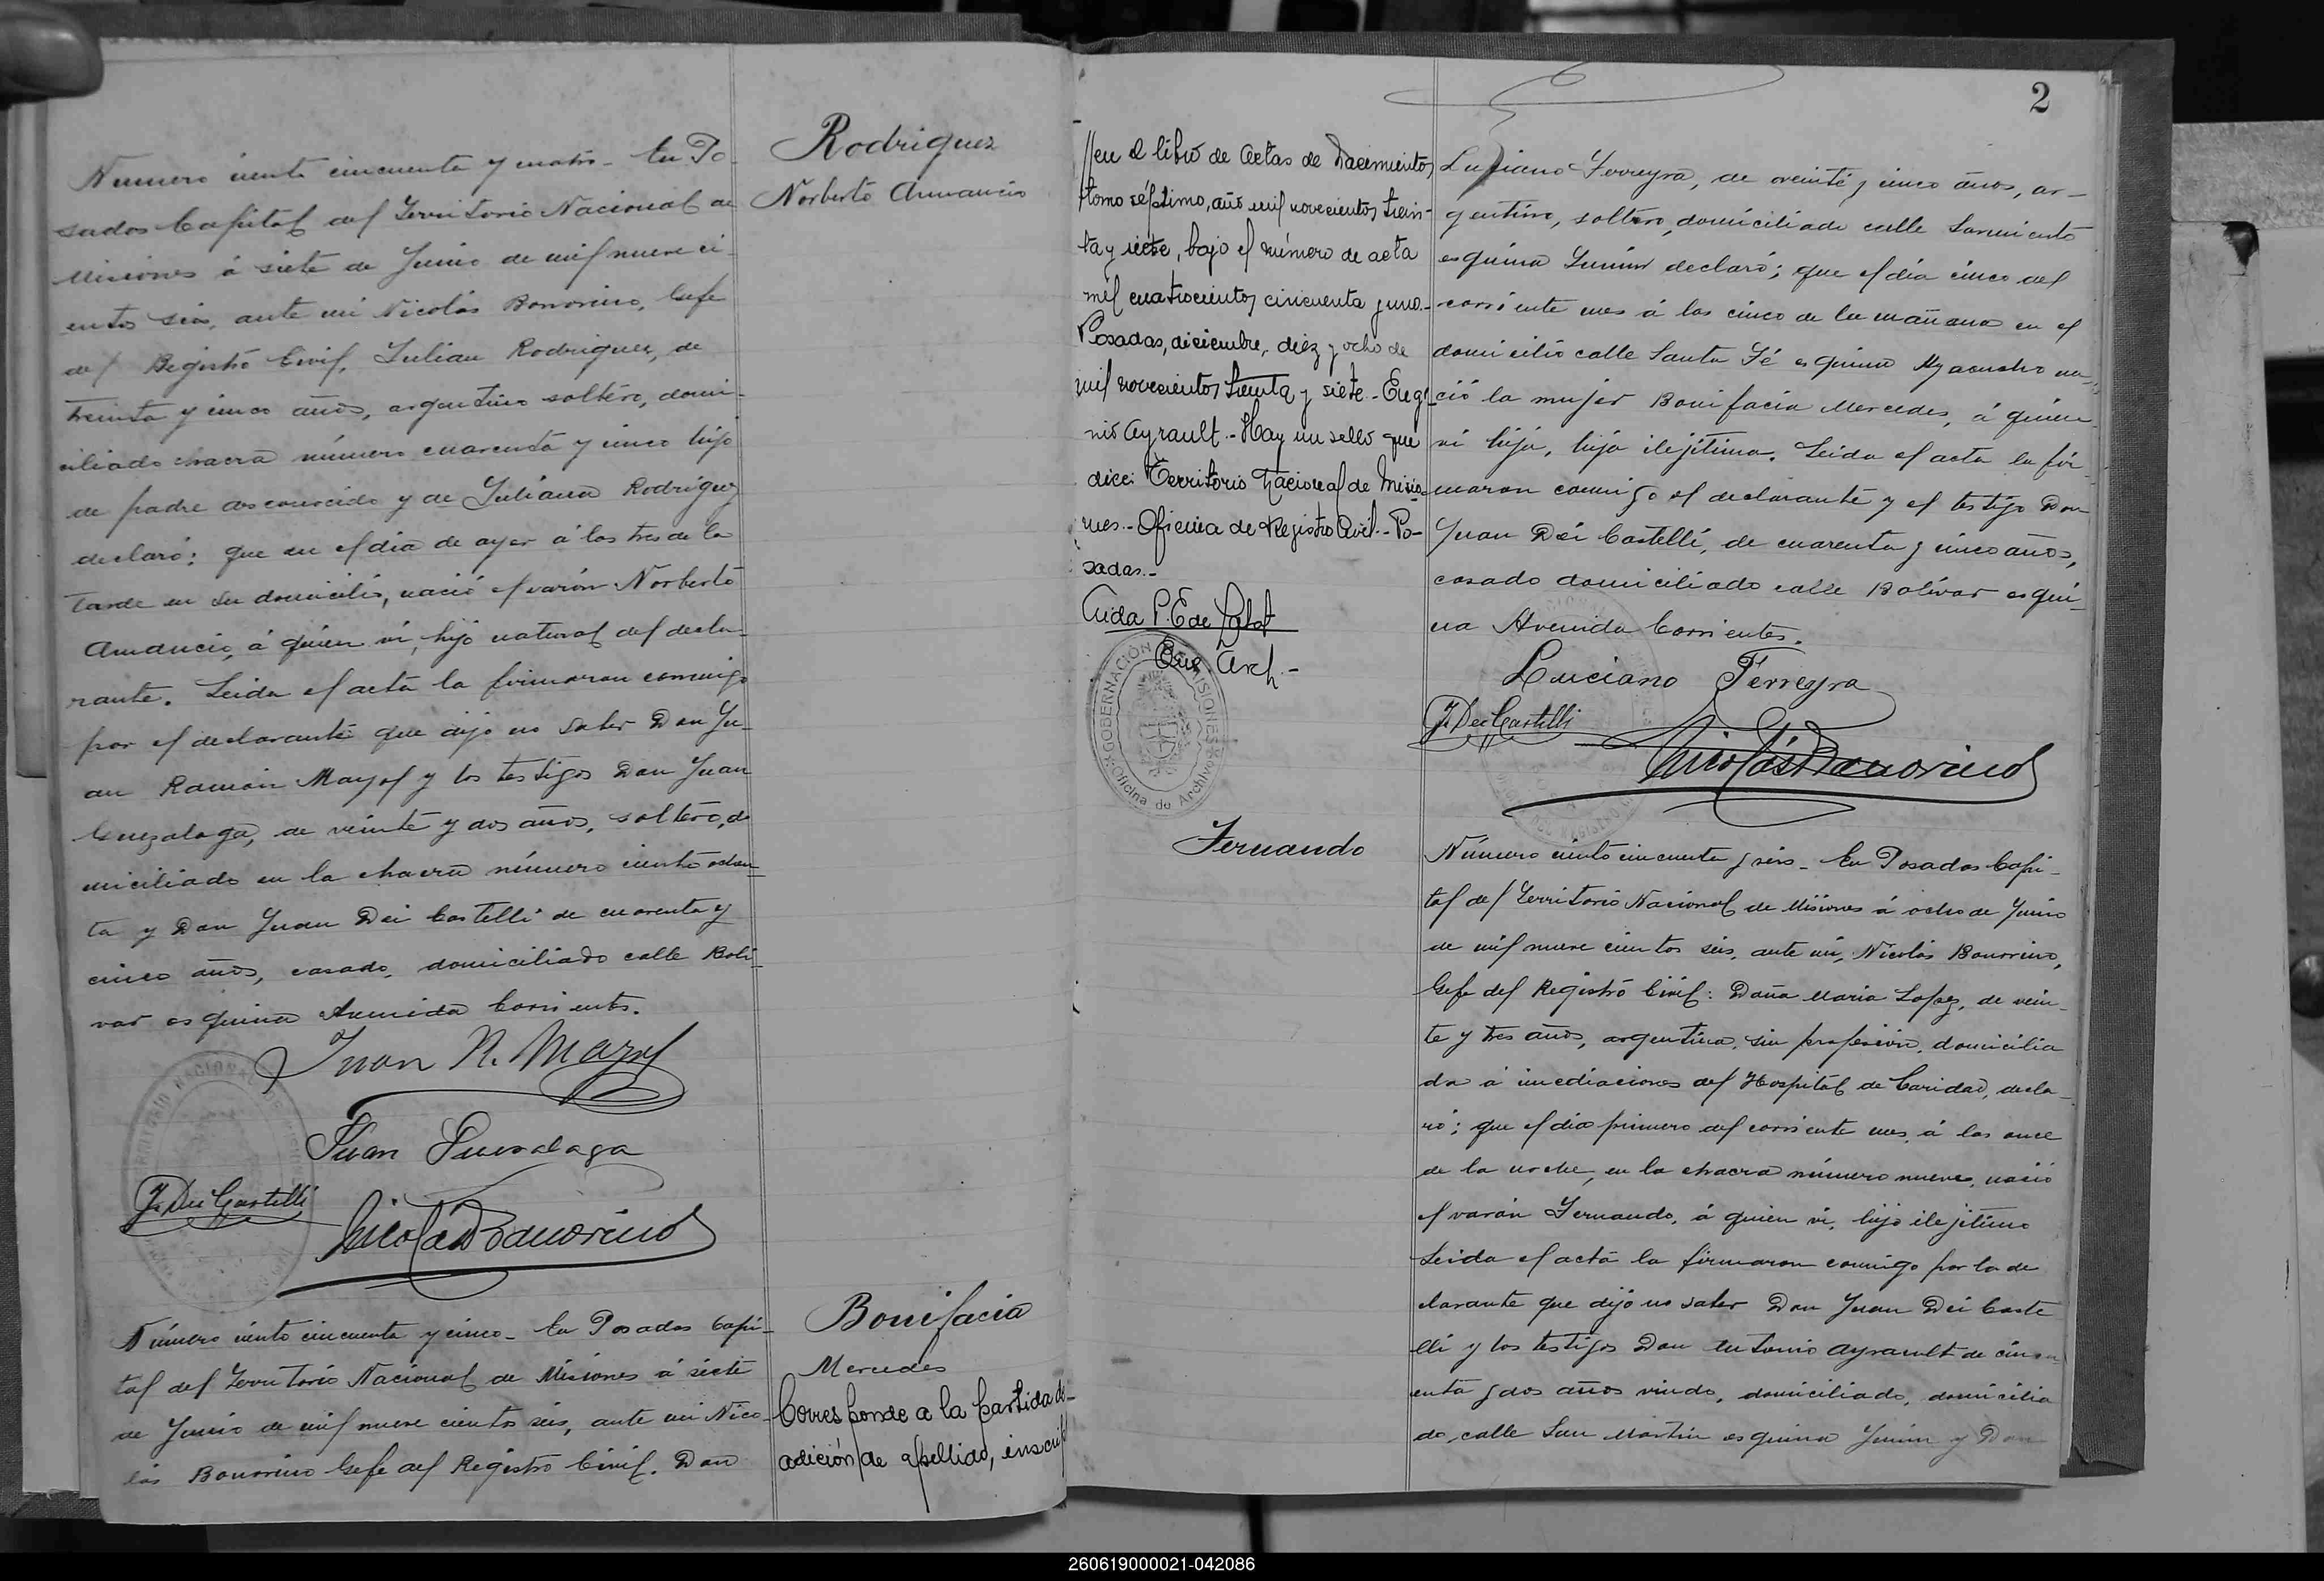 Rodriguez
Norberto Amancio
Número ciento cincuenta y cuatro - En Po-
sadas Capital del Territorio Nacional de
Misiones á siete de Junio de mil nueveci-
entos seis, ante mi Nicolás Bonorino, Gefe
del Registro Civil, Julian Rodriguez, de
treinta y cinco años, argentino soltero, domi-
ciliado chacra número cuarenta y cinco hijo
de padre desconocido y de Juliana Rodriguez
declaró: que en el dia de ayer á las tres de la
tarde en su domicilio, nació el varón Norberto
Amancio, á quien vi, hijo natural del decla-
rante. Leida el acta la firmaron conmigo
por el declarante que dijo no saber Don Ju-
an Ramón Mayol y los testigos Don Juan
Guezalaga, de veinte y dos años, soltero, do
miciliado en la chacra número ciento ochen-
ta y Don Juan Dei Castelli de cuarenta y
cinco años, casado, domiciliado calle Boli-
var esquina Avenida Corrientes.
Juan R. Mayol
Juan Guezalaga
J. Dei Castelli
Nicolás Bonorino
Bonifacia
Mercedes
Número ciento cincuenta y cinco - En Posadas Capi-
tal del Territorio Nacional de Misiones á siete
de Junio de mil nueve cientos seis, ante mi Nico-
lás Bonorino Gefe del Registro Civil. Don
Corresponde a la partida de
adición de apellido, inscrip
2
//en el libro de Actas de Nacimientos
tomo séptimo, año mil novecientos trein-
ta y siete, bajo el número de acta
mil cuatrocientos cincuenta y uno.-
Posadas, diciembre, diez y ocho de
mil novecientos treinta y siete.- Euge
nio Ayrault.- Hay un sello que
dice: Territorio Nacional de Misio-
nes.- Oficina de Registro Civil.- Po-
sadas.-
Aida P. E de
Enc Arch.-
GOBERNACIÓN DE MISIONES
Oficina de Archivo
Luciano Ferreyra, de veinte y cinco años, ar-
gentino, soltero, domiciliado calle Sarmiento
esquina Junin declaró; que el dia cinco del
corriente mes á las cinco de la mañana en el
domicilio calle Santa Fé esquina Ayacucho na-
ció la mujer Bonifacia Mercedes, á quien
vi hija, hija ilejítima. Leida el acta la fir-
maron conmigo el declarante y el testigo Don
Juan Dei Castelli, de cuarenta y cinco años,
casado domiciliado calle Bolívar esqui-
na Avenida Corrientes.
Luciano Ferreyra
J. Dei Castelli
Nicolás Bonorino
Fernando
Número ciento cincuenta y seis - En Posadas Capi-
tal del Territorio Nacional de Misiones á ocho de Junio
de mil nueve cientos seis, ante mi, Nicolás Bonorino,
Gefe del Registro Civil: Doña Maria Lopez, de vein-
te y tres años, argentina, sin profesión, domicilia
da á inmediaciones del Hospital de Caridad, decla-
ró; que el dia primero del corriente mes, á las once
de la noche, en la chacra número nueve, nació
el varón Fernando, á quien vi, hijo ilejítimo
Leida el acta la firmaron conmigo por la de
clarante que dijo no saber Don Juan Dei Caste
lli y los testigos Don Antonio Ayrault de cincu
enta y dos años viudo, domiciliado, domicilia
do, calle San Martin esquina Junin y Don
260619000021-042086